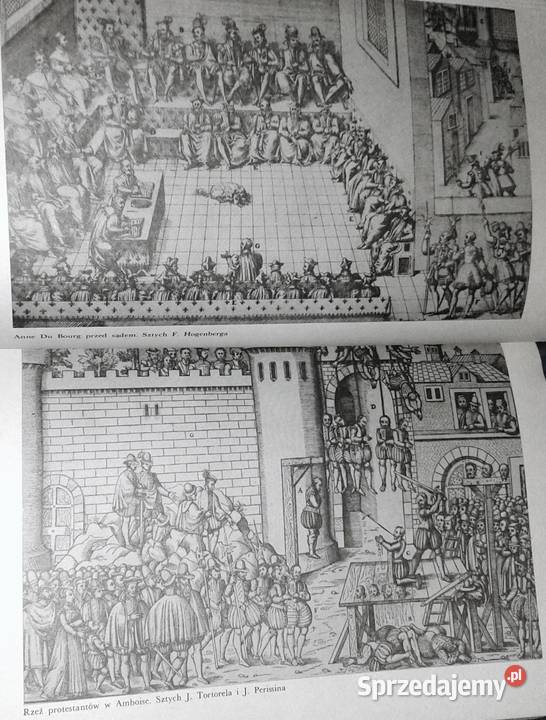 Anne Du Bourg przed sądem. Sztych F. Hogenberga
G
D
G
A
Rzeź protestantów w Amboise. Sztych J. Tortorela i J. Perissina
Sprzedajemy.pl